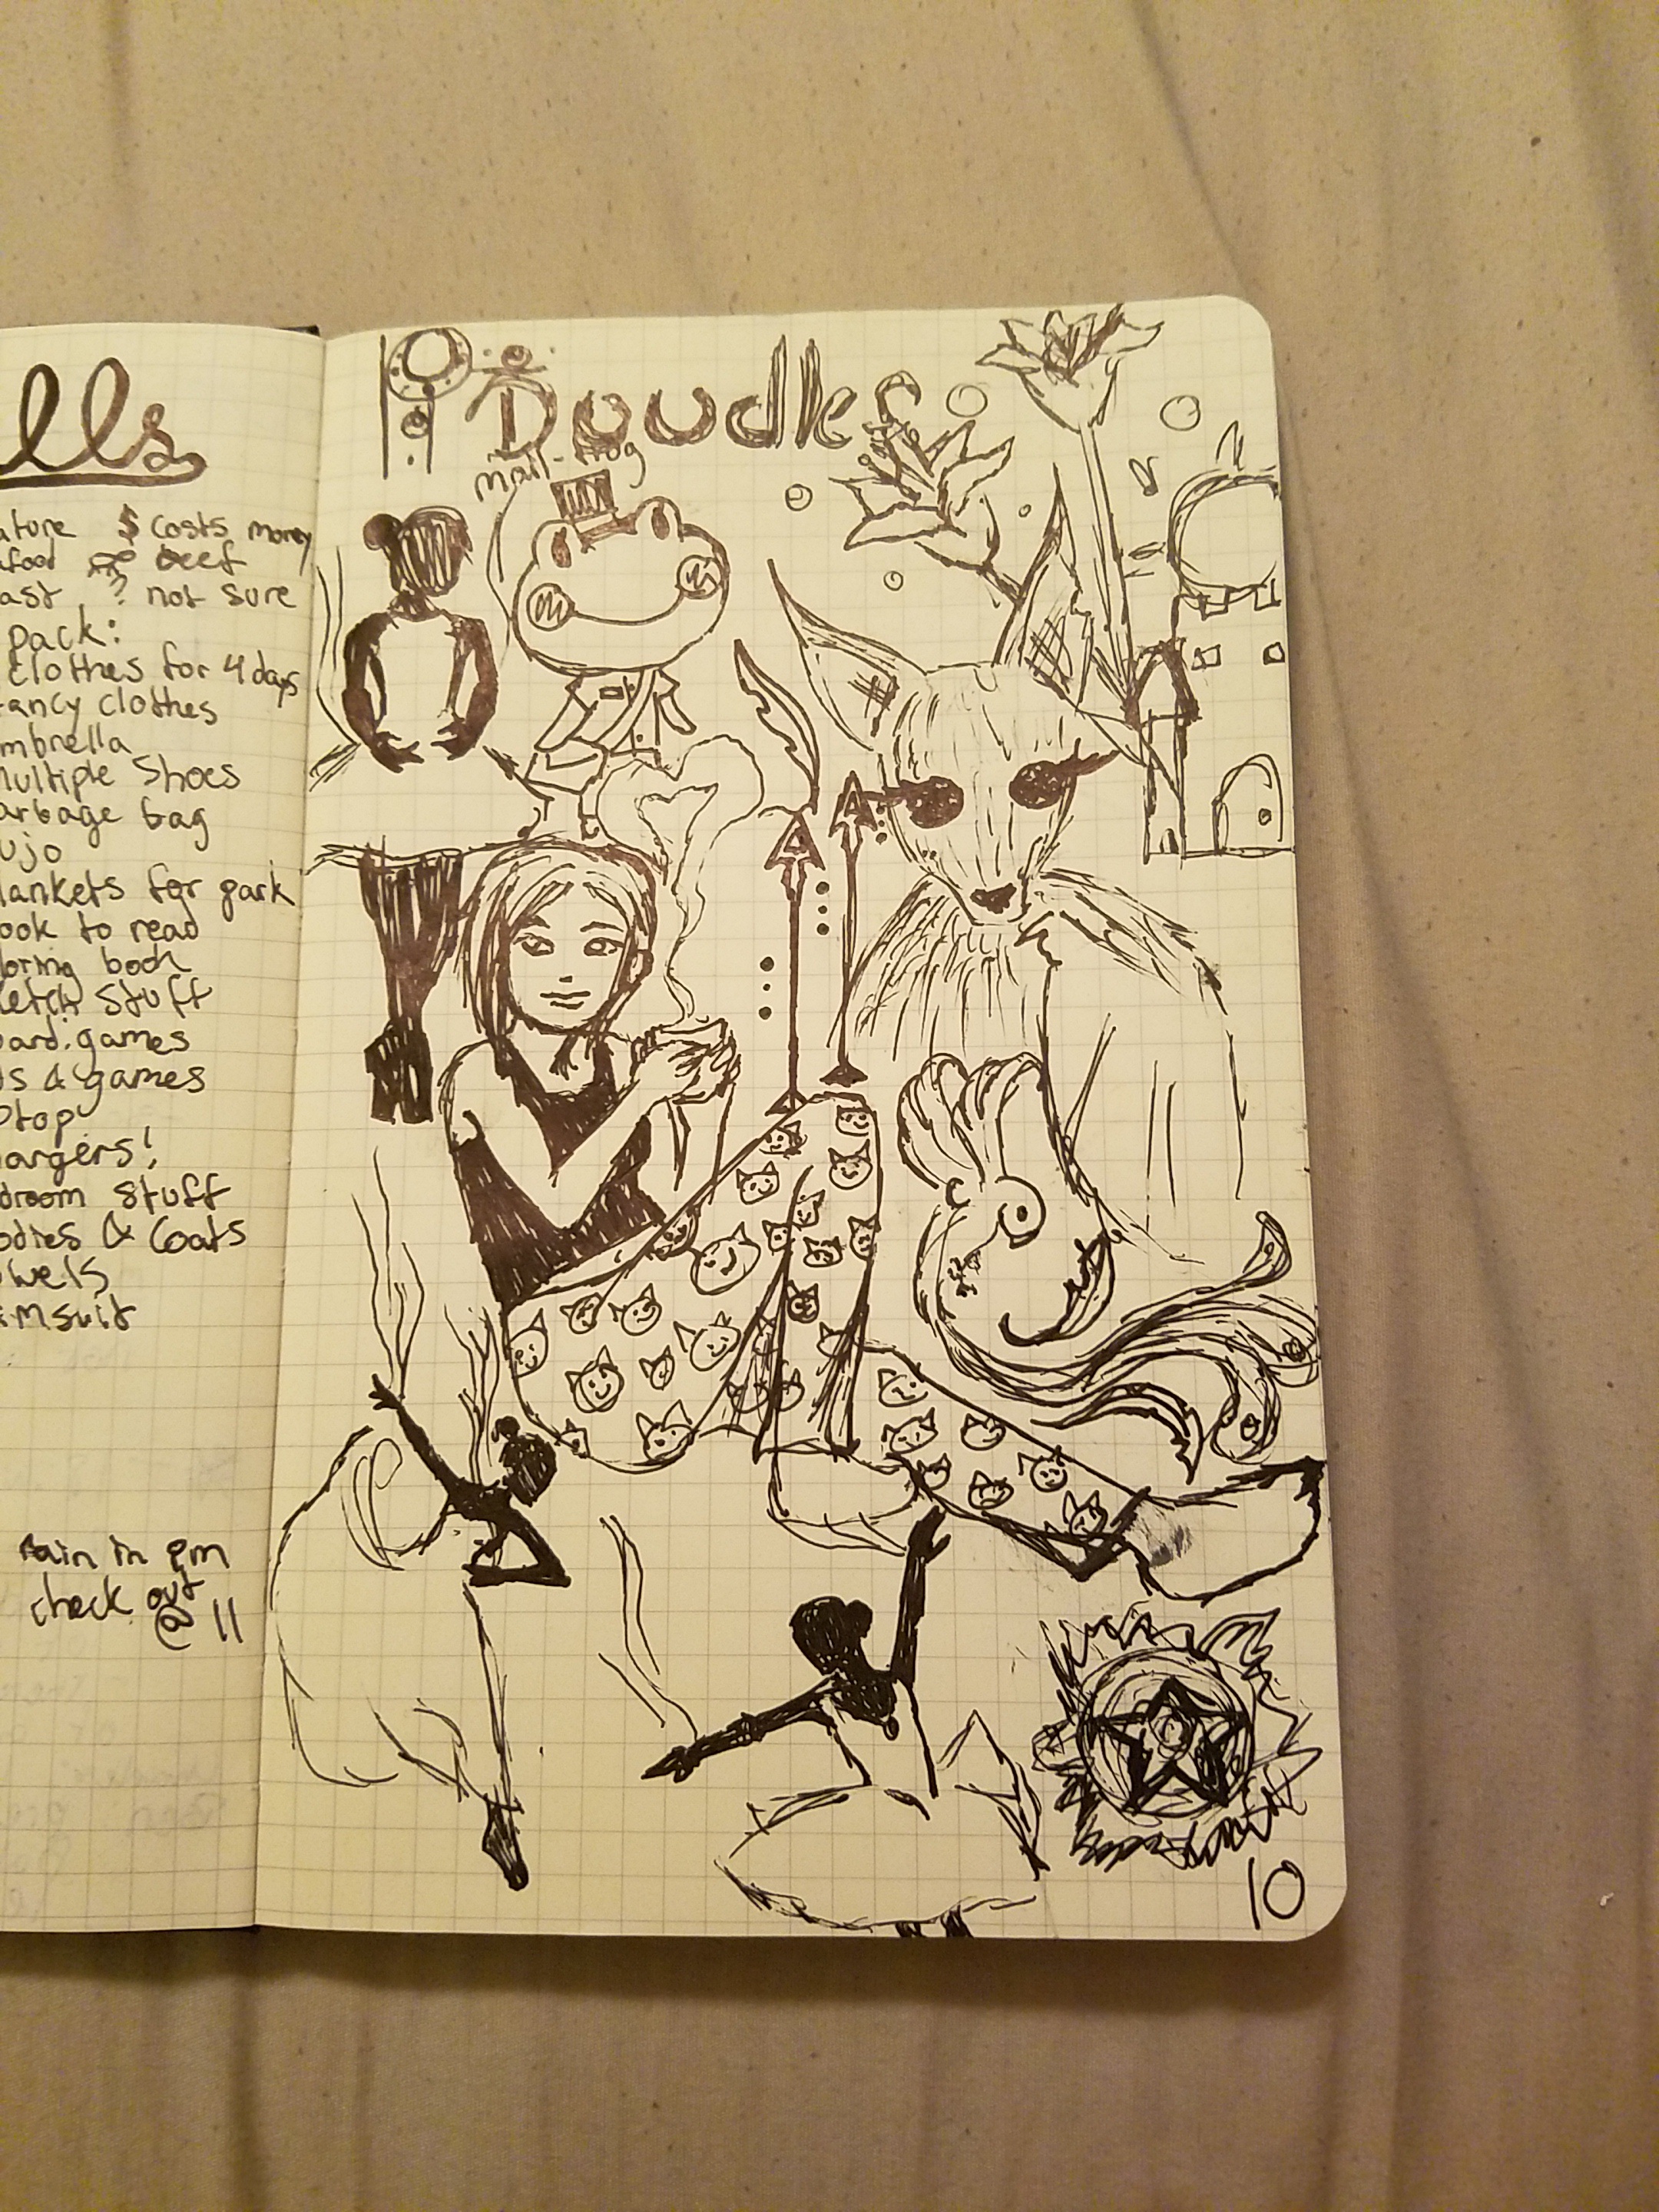 lls
ature $ costs money
afood beef
ast ? not sure
pack:
clothes for 4 days
fancy clothes
mbrella
Multiple Shoes
arbage bag
ujo
lankets for park
ook to read
loring book
ketch stuff
oard games
ds & games
ptop
hargers!
droom stuff
odies & Coats
wels
imsuit
rain in pm
check out
@ 11
Doodles
mall-frog
10